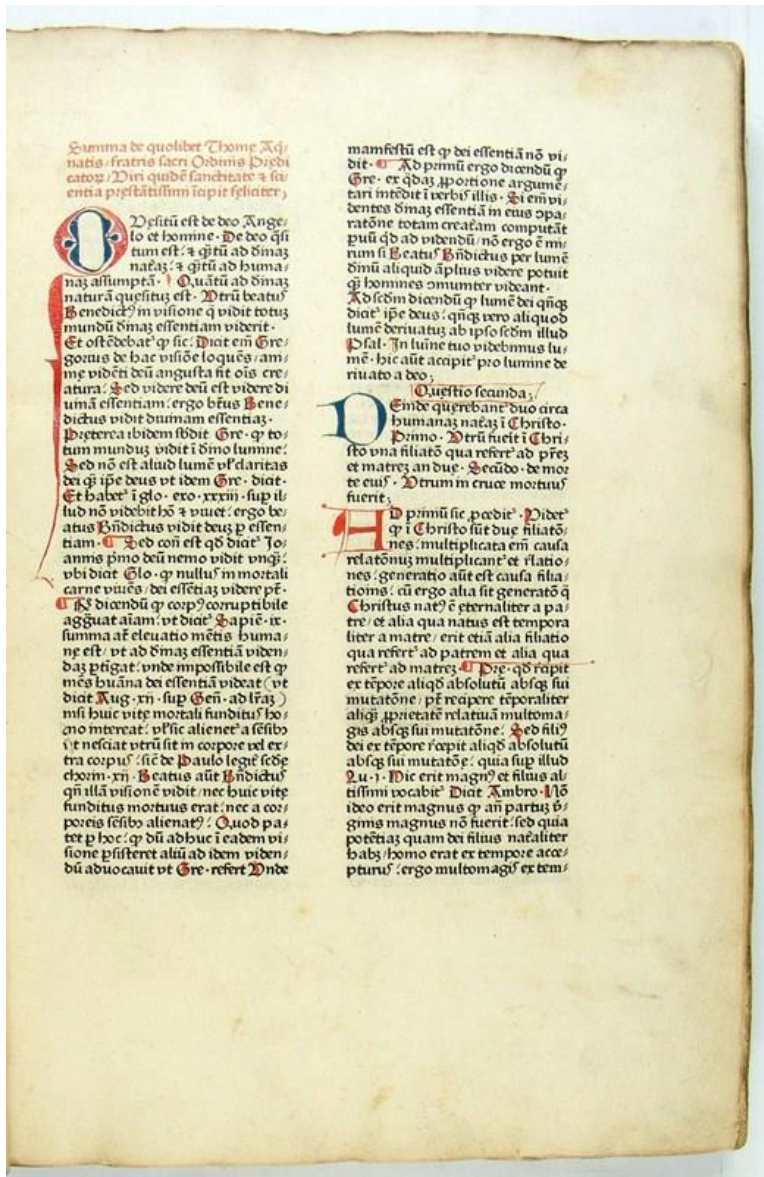 Summa de quolibet Thomę Aq̄ꝛ
natis ⸝ fratris sacri Ordinis Prędi
catoꝝ ⸝ Viri quidē sanctitate ⁊ sciꝛ
entia pręstātissimi īcipit feliciter ;
QVęsitū est de deo Angeꝛ
lo et homine · De deo q̄si
tum est : ⁊ q̄tū ad dīnaꝫ
nat̄aꝫ : ⁊ q̄tū ad humaꝛ
naꝫ assumptā · Quātū ad dīnaꝫ
naturā quęsituꝫ est · Vtrū beatus
Benedictꝰ in visione q̄ vidit totuꝫ
mundū dīnaꝫ essentiam viderit ·
Et ostēdebat᷑ ꝙ sic : Dicit em̄ Greꝛ
gorius de hac visiōe loquēs ⸝ aniꝛ
mę vidēti deū angusta fit oīs creꝛ
atura : Sed videre deū est videre di
uinā essentiam : ergo bt̄us Beneꝛ
dictus vidit diuinam essentiaꝫ ·
Pręterea ibidem sb̄dit Gre · ꝙ toꝛ
tum munduꝫ vidit ī dīno lumine :
Sed nō est aliud lumē vꝉ claritas
dei q̄ꝫ ip̄e deus vt idem Gre · dicit ·
Et habet᷑ ī glo · exo · xxxiii · sup̄ ilꝛ
lud nō videbit hō ⁊ viuet : ergo beꝛ
atus Bn̄dictus vidit deuꝫ ꝑ essenꝛ
tiam · Sed con̄ est qd̄ dicit᷑ Ioꝛ
annis pͥmo deū nemo vidit vnqͣꝫ :
vbi dicit Glo · ꝙ nullus in mortali
carne viuēs ⸝ dei essētiaꝫ videre pt̄ ·
Rꝰ dicendū ꝙ corpꝰ corruptibile
aggͣuat aīam : vt dicit᷑ Sapiē · ix ·
summa at̄ eleuatio mētis humaꝛ
nę est ⸝ vt ad dīnaꝫ essentiā videnꝛ
daꝫ ꝑtigat : vnde impossibile est ꝙ
mēs huāna dei essentiā videat ( vt
dicit Aug · xii · sup̄ Gen̄ · ad lr̄aꝫ )
nisi huic vitę mortali funditus hoꝛ
mo intereat : vꝉ sic alienet᷑ a sēsibꝰ
vt nesciat vtrū sit in corpore vel exꝛ
tra corpus : sic̄ de Paulo legit᷑ scd̄ę
chorin · xii · Beatus aūt Bn̄dictus
qn̄ illā visionē vidit ⸝ nec huic vitę
funditus mortuus erat : nec a corꝛ
poreis sēsibꝰ alienatꝰ : Quod paꝛ
tet ꝑ hoc : ꝙ dū adhuc ī eadem viꝛ
sione ꝑsisteret aliū ad idem videnꝛ
dū aduocauit vt Gre · refert Vnde
manifestū est ꝙ dei essentiā nō viꝛ
dit · Ad primū ergo dicendū ꝙ
Gre · ex q̄daꝫ ꝓportione argumēꝛ
tari intēdit ī verbis illis · Si em̄ viꝛ
dentes dīnaꝫ essentiā in eius ꝯpaꝛ
ratōne totam creat̄am computāt
ꝑuū qd̄ ad videndū ⸝ nō ergo ē miꝛ
rum si Beatus Bn̄dictus per lumē
dīnū aliquid āplius videre potuit
qͣꝫ homines ꝯmunter videant ·
Ad scd̄m dicendū ꝙ lumē dei qn̄qꝫ
dicit᷑ ip̄e deus : qn̄qꝫ vero aliquod
lumē deriuatuꝫ ab ipso scd̄m illud
Psal · In lumīe tuo videbimus luꝛ
mē · hic aūt accipit᷑ pro lumine de
riuato a deo ;
Quęstio secunda ;
DEinde quęrebant᷑ duo circa
humanaꝫ nat̄aꝫ ī Christo ·
Primo · Vtrū fuerit ī Chriꝛ
sto vna filiatō qua refert᷑ ad pr̄eꝫ
et matreꝫ an duę · Secūdo · de mor
te eius · Vtrum in cruce mortuus
fuerit ;
AD primū sic ꝓcedit᷑ · Videt᷑
ꝙ ī Christo sūt duę filiatōꝛ
nes : multiplicata em̄ causa
relatōnuꝫ multiplicant᷑ et rl̄atioꝛ
nes : generatio aūt est causa filiaꝛ
tionis : cū ergo alia sit generatō q̄
Christus natꝰ ē ęternaliter a paꝛ
tre ⸝ et alia qua natus est tempora
liter a matre ⸝ erit etiā alia filiatio
qua refert᷑ ad patrem et alia qua
refert᷑ ad matreꝫ · Pręt̄ · qd̄ rēcipit
ex tēpore aliqd̄ absolutū absqꝫ sui
mutatōne ⸝ pt̄ recipere tēporaliter
aliqͣꝫ ꝓprietatē relatiuā multomaꝛ
gis absqꝫ sui mutatōne : Sed filiꝰ
dei ex tēpore rēcepit aliqd̄ absolutū
absqꝫ sui mutatōe : quia sup̄ illud
Lu · 1 · Hic erit magnꝰ et filius alꝛ
tissimi vocabit᷑ Dicit Ambro · Nō
ideo erit magnus ꝙ an̄ partuꝫ v̄ꝛ
ginis magnus nō fuerit : sed quia
potētiaꝫ quam dei filius nat̄aliter
habꝫ ⸝ homo erat ex tempore acceꝛ
pturus : ergo multomagis ex temꝛ